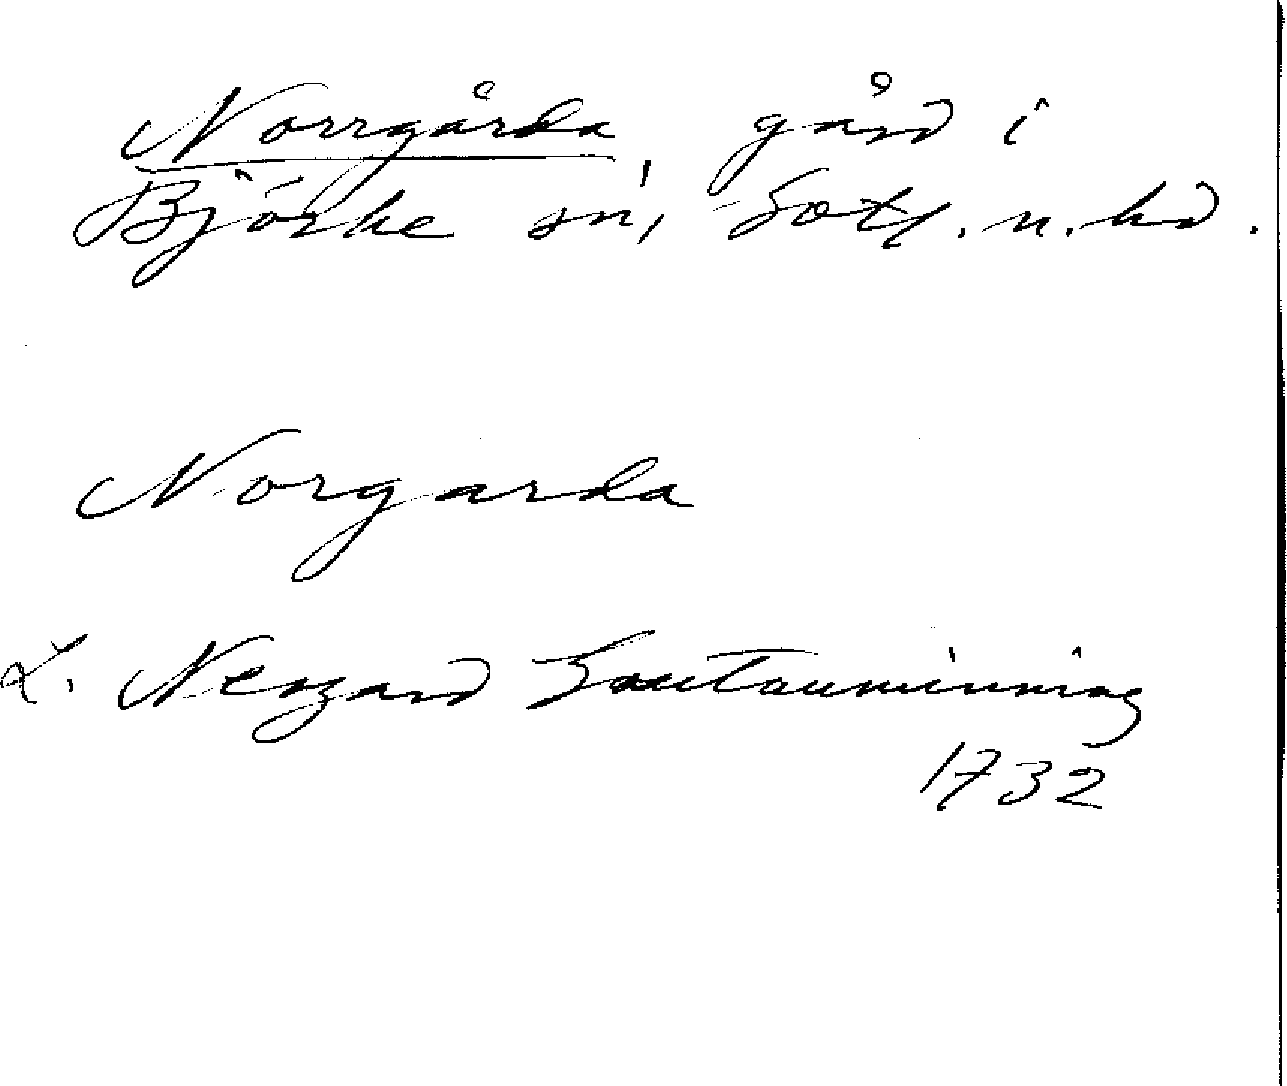 Norrgårda, gård i
Björke sn, Gotl. n. hd.
Norgarda
L. Neogard
1732